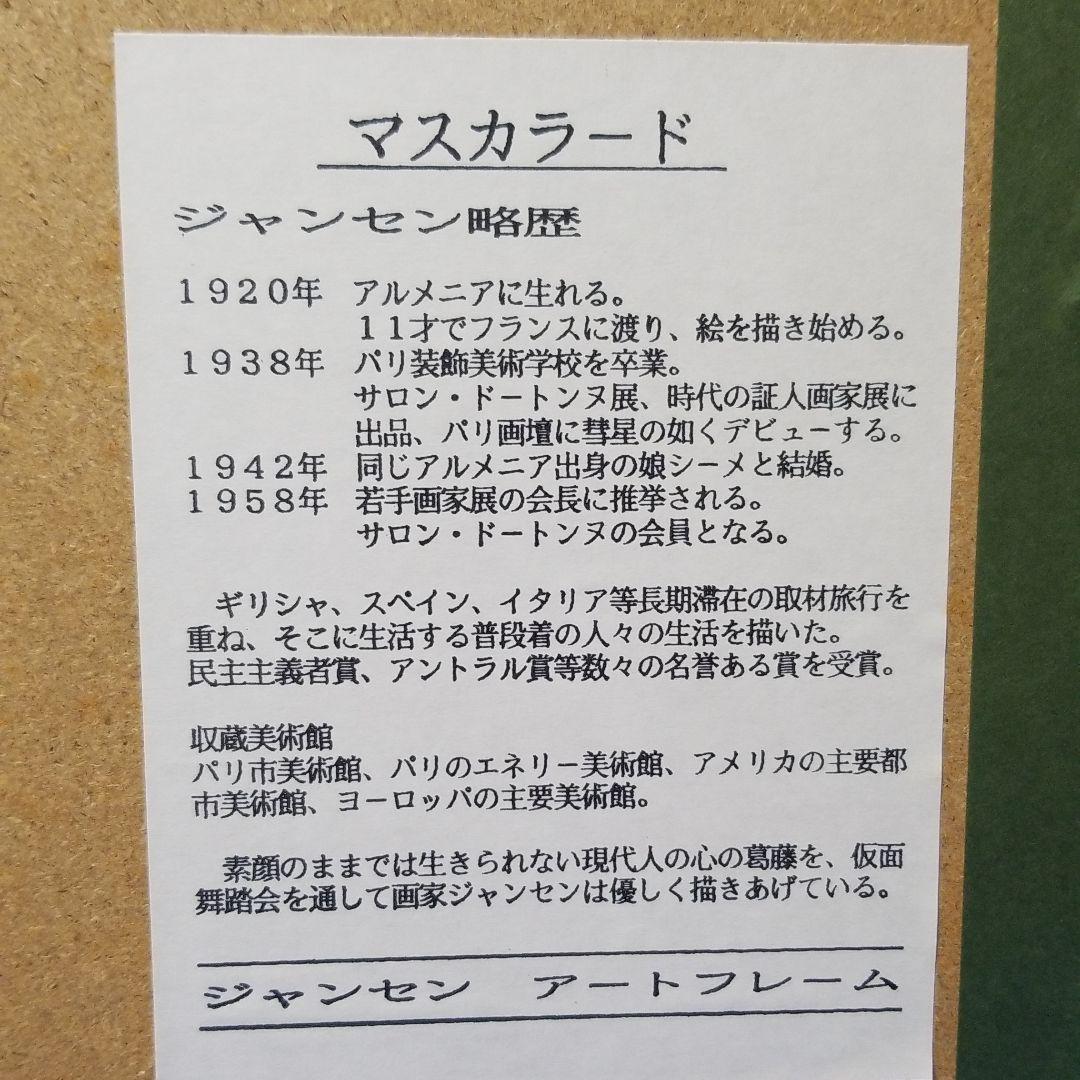 マスカラード
ジャンセン略歴
１９２０年　アルメニアに生れる。
１１才でフランスに渡り、絵を描き始める。
１９３８年　パリ装飾美術学校を卒業。
サロン・ドートンヌ展、時代の証人画家展に
出品、パリ画壇に彗星の如くデビューする。
１９４２年　同じアルメニア出身の娘シーメと結婚。
１９５８年　若手画家展の会長に推挙される。
サロン・ドートンヌの会員となる。
ギリシャ、スペイン、イタリア等長期滞在の取材旅行を
重ね、そこに生活する普段着の人々の生活を描いた。
民主主義者賞、アントラル賞等数々の名誉ある賞を受賞。
収蔵美術館
パリ市美術館、パリのエネリー美術館、アメリカの主要都
市美術館、ヨーロッパの主要美術館。
素顔のままでは生きられない現代人の心の葛藤を、仮面
舞踏会を通して画家ジャンセンは優しく描きあげている。
ジャンセン　アートフレーム